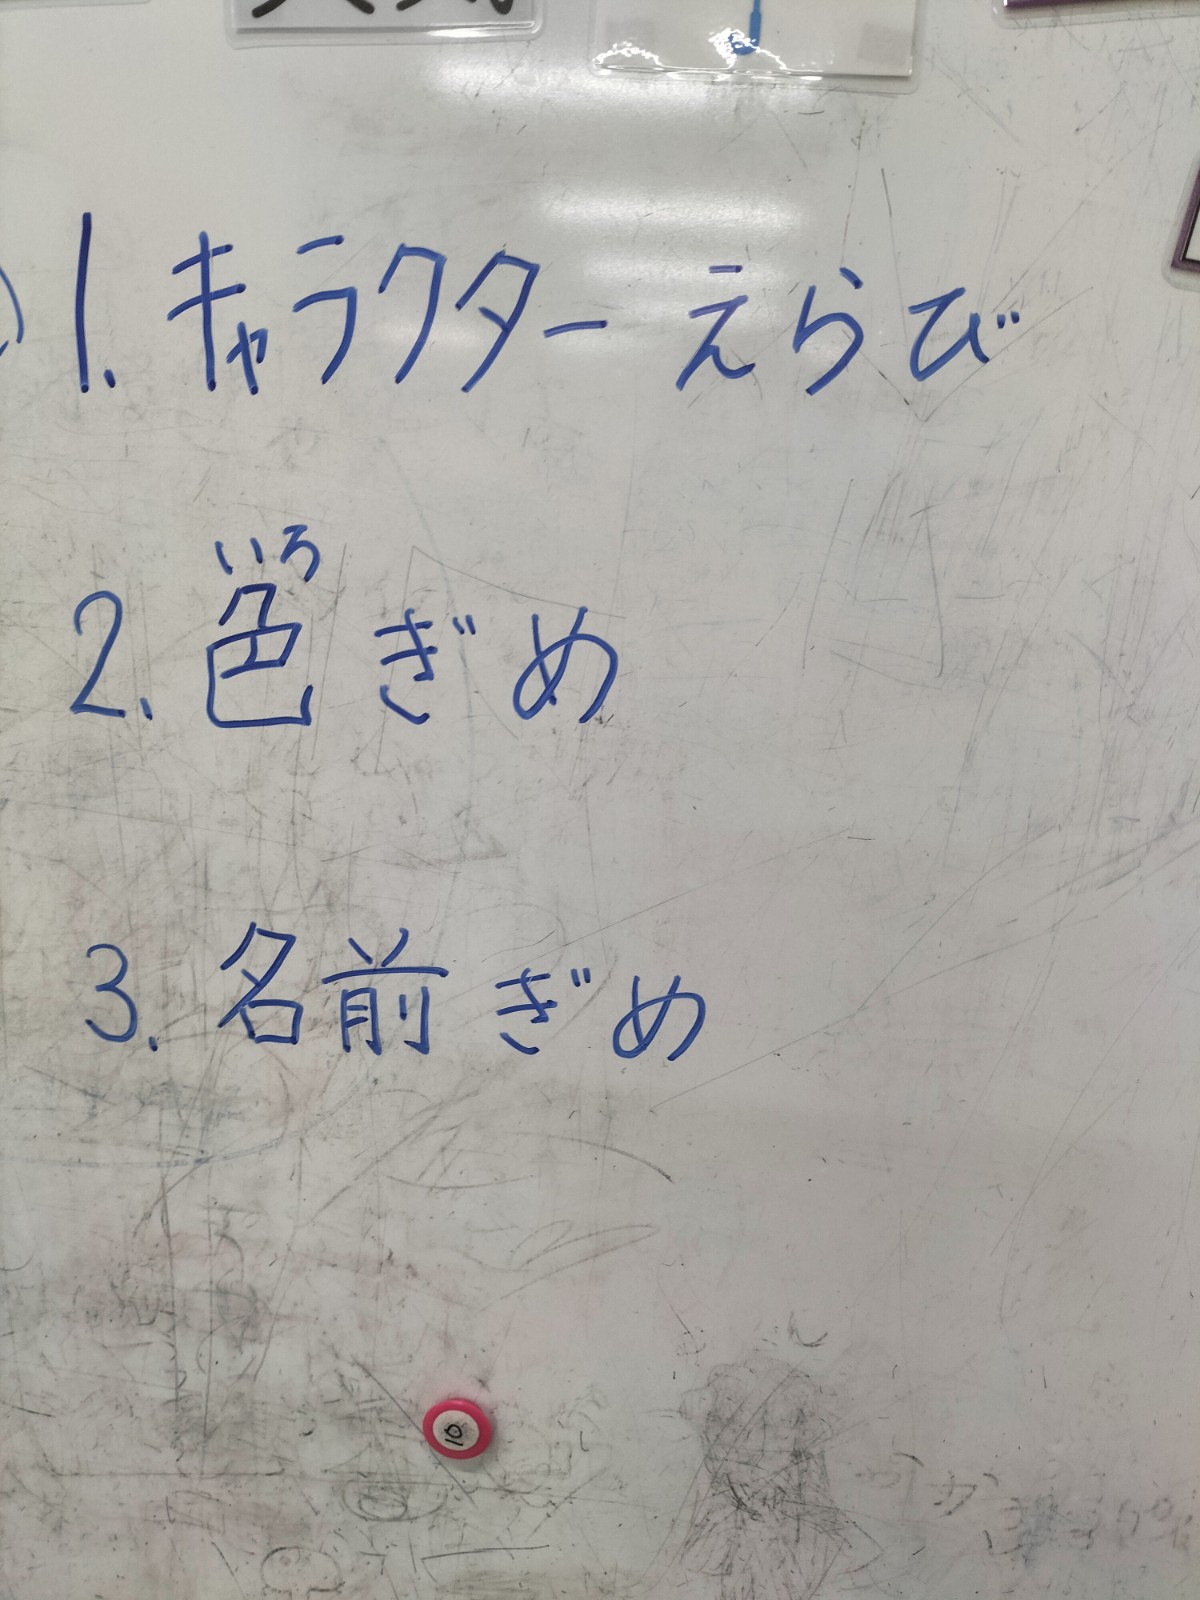 1. キャラクターえらび
いろ
2. 色ぎめ
3. 名前ぎめ
10